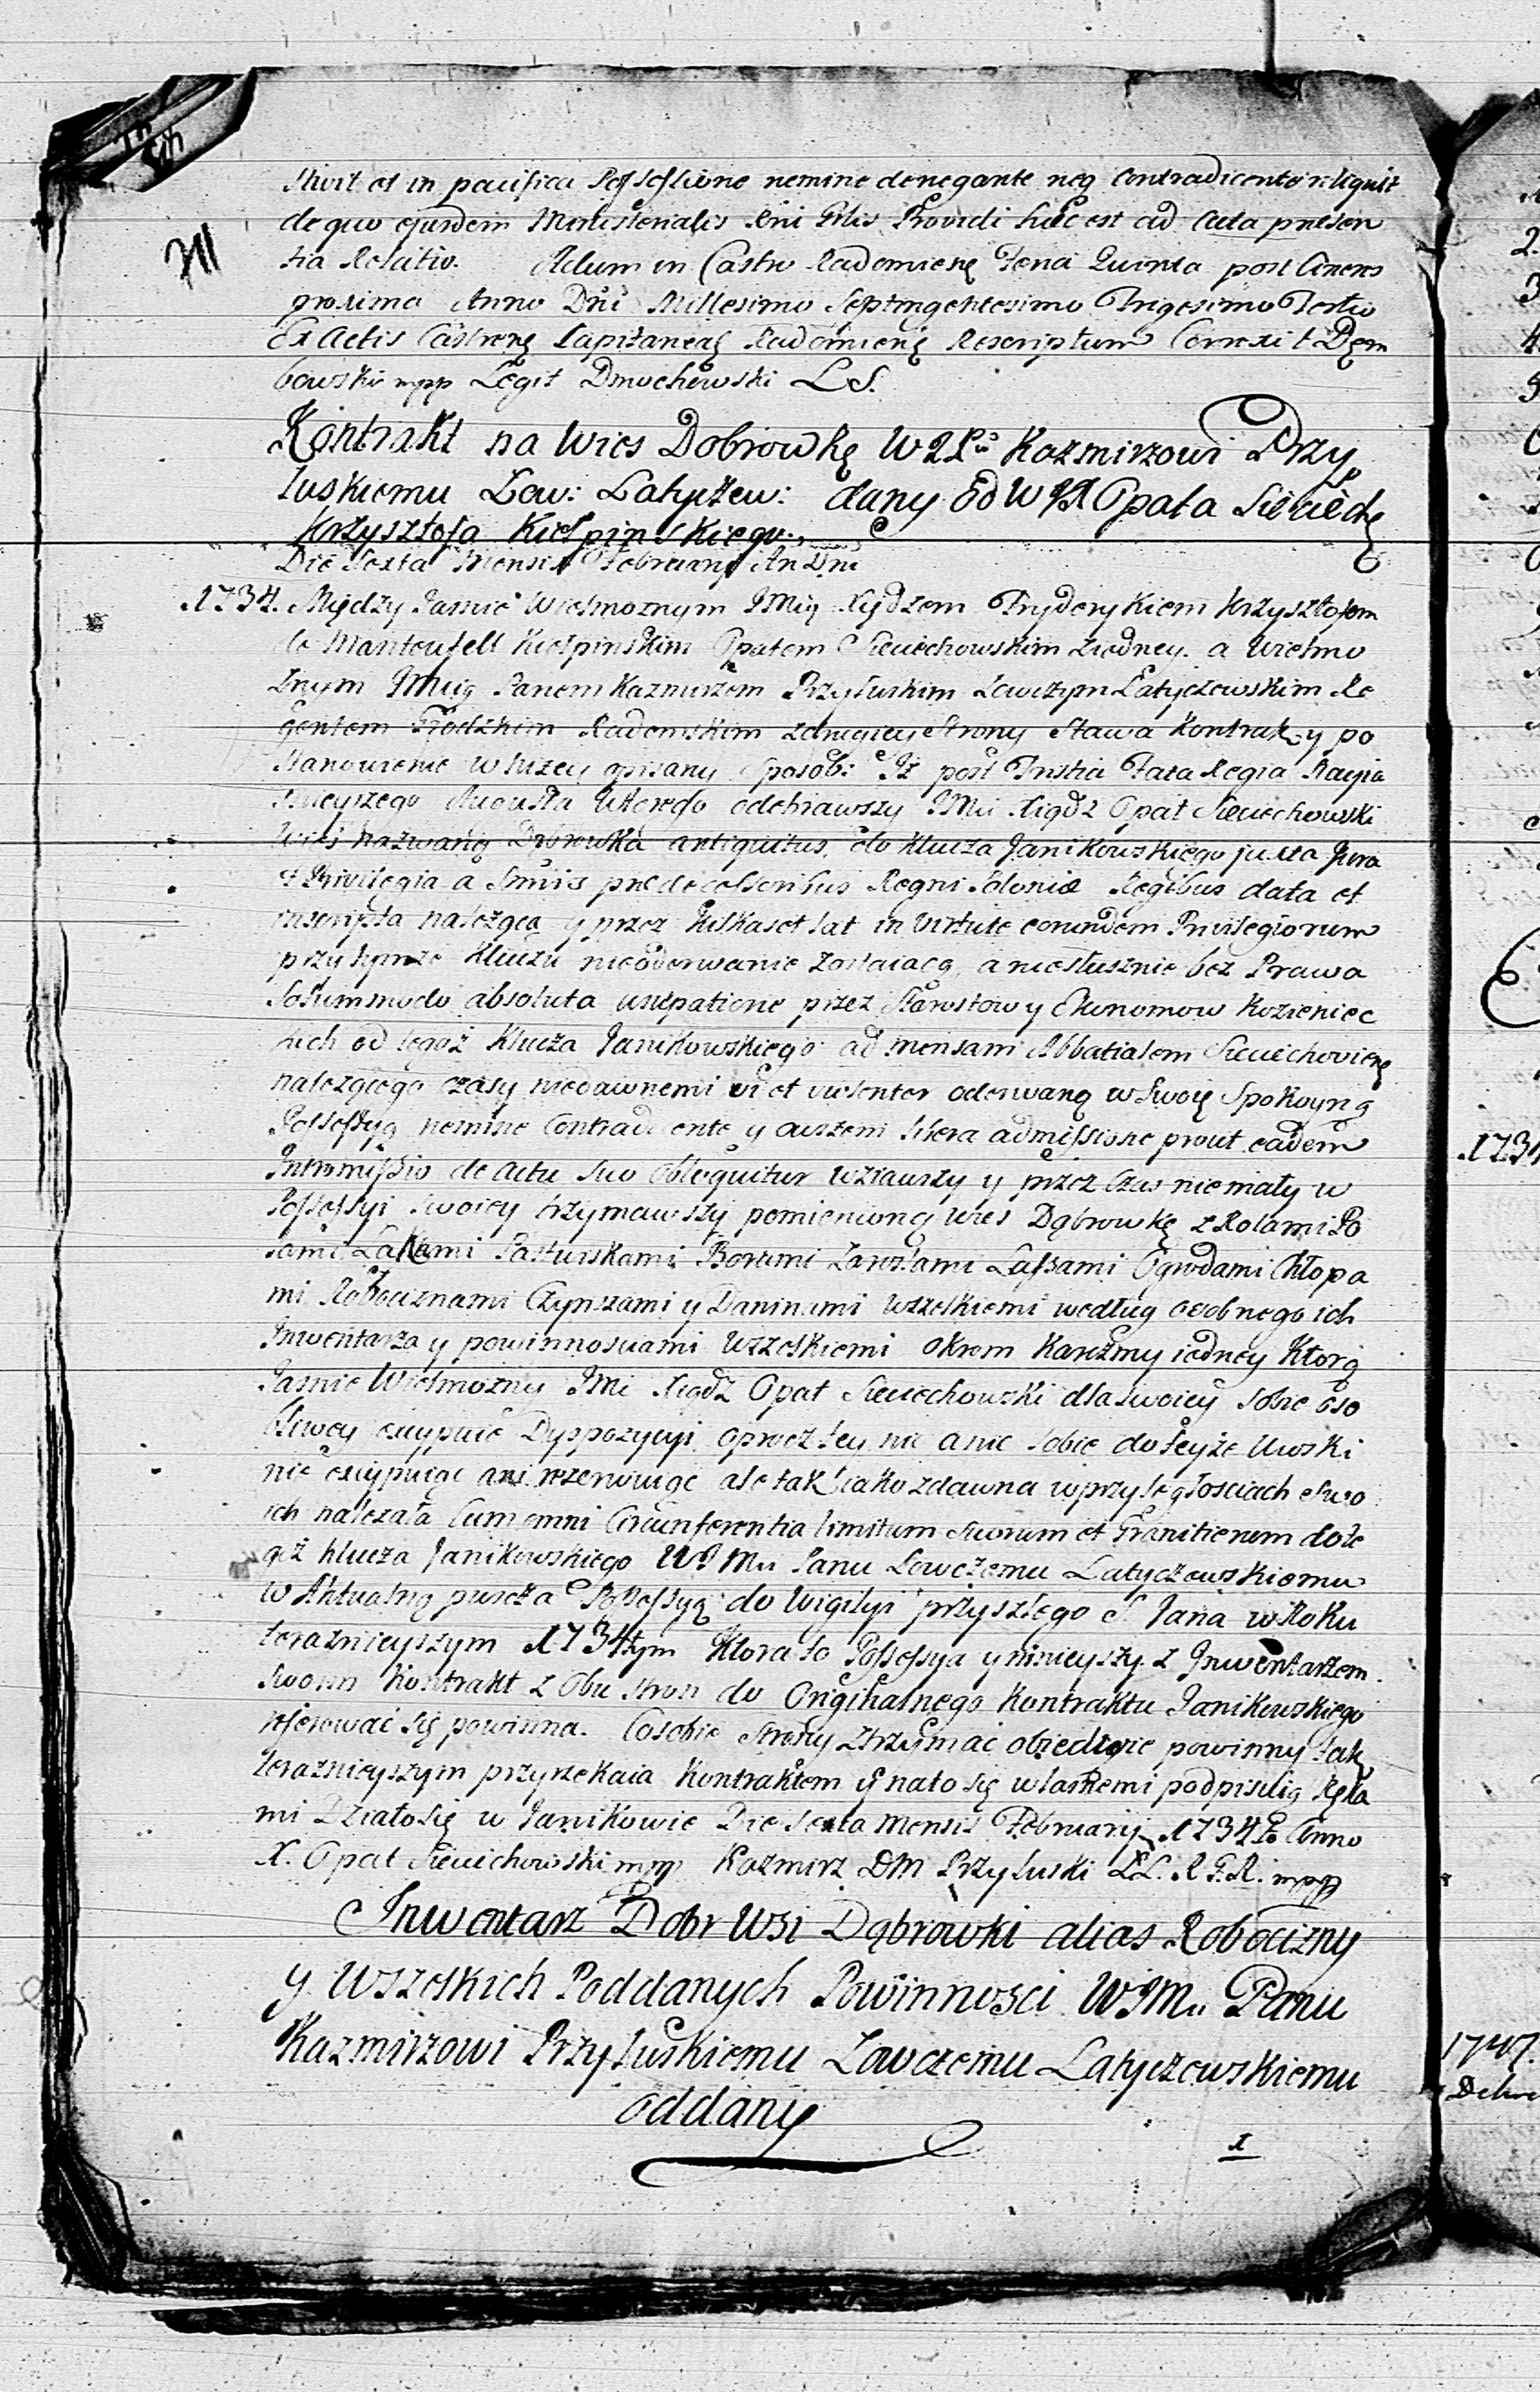 stwit et in pacifica Possessione nemine denegante neq Contradicente reliquit
de quo ejusdem Ministerialis Providi huc est ad acta presen
tia Relatio. Actum in Castro Radomiens Feria Quinta post Cineres
proxima Anno Dni Millesimo Septingentesimo Trigesimo Tertio
Ex Actis Castrens Capitaneal Radomiens Rescriptum Correxit Dem
bowski mpp Legit Dmochowski L S.
Kontrakt na Wies Dobrowkę W Kazmirzowi Przy
łuskiemu Low: Latyczew: dany Od W Opata Sieciech
Krzysztofa Kiełpinskiego.
Die Sexta Mensis Februarij An Dni
1734. Między Jasnie Wielmoznym Imię Xiędzem Fryderykiem Krzysztofem
de Manteufell Kiełpinskim Opatem Sieciechowskim z iedney. a Wielmo
znym Imcią Panem Kazmirzem Przyłuskim Łowczym Latyczewskim Re
gentem Grodzkim Radomskim z drugiey Strony Stawa Kontrakt y po
stanowienie w nizey opisany Sposob: Iż post Tristia Fata Regia Nayia
snieyszego Augusta Wtorego odebrawszy IMci Xiądz Opat Sieciechowski
Wieś nazwaną Dąbrowka antiquitus do Klucza Janikowskiego juxta Jura
et Privilegia a Smis predecessoribus Regni Poloniæ Regibus data et
inscripta nalezącą y przez kilkaset lat in Virtute eorundem Privilegiorum
przy tymze Kluczu nieoderwanie zostaiącą, a niesłusznie bez Prawa
Solummodo absoluta usurpatione przez Starostow y Ekonomow Kozieniec
kich od tegoż Klucza Janikowskiego ad mensam Abbatialem Sieciechoviens
nalezącego czasy niedawnemi vi et violenter oderwaną w Swoię Spokoyną
Possessyą nemine Contradicente y owszem libera admissione prout eadem
Intromissio de Actu Suo Obloquitur wziąwszy y przez Czas niemały w
Possessyi Swoiey trzymawszy pomienioną Wies Dąbrowkę z Rolami Po
lami Łąkami Pastwiskami Borami Zaroslami Lassami Ogrodami Chłopa
mi Robociznami Czynszami y Daninami wszelkiemi według osobnego ich
Inwentarza y powinnosciami Wszelkiemi okrom Karczmy iedney Ktorą
Jasnie Wielmozny IMci Xiądz Opat Sieciechowski dla Swoiey Sobie oso
bliwey excypuie Dyspozycyi oprocz tey nic a nic sobie do teyże Wioski
nie excypuiąc ani rezerwuiąc ale tak iako zdawna w przyległosciach Swo
ich nalezała Cum omni Circumferentia limitum Suorum et Granitierum do te
goż Klucza Janikowskiego W IMci Panu Łowczemu Latyczewskiemu
w Aktualną puszcza Possessyą do Wigilyi przyszłego S Jana w Roku
teraznieyszym 1734tym Ktora to Possessya y ninieyszy z Inwentarzem
Swoim Kontrakt z Obu stron do Originalnego Kontraktu Janikowskiego
referowac się powinna. Co sobie Strony ztrzymac obiedwie powinny tak
teraznieyszym przyrzekaia Kontraktem y na to się własnemi podpisuią Ręka
mi Działo się w Janikowie Die Sexta Mensis Februarij 1734to Anno
X. Opat Sieciechowski mpp Kazmirz DM Przyłuski Ł L. R G. R. mpp
Inwentarz Dobr Wsi Dąbrowki alias Robocizny
y Wszelkich Poddanych Powinności WIMci Panu
Kazmirzowi Przyłuskiemu Łowczemu Latyczewskiemu
oddany
1